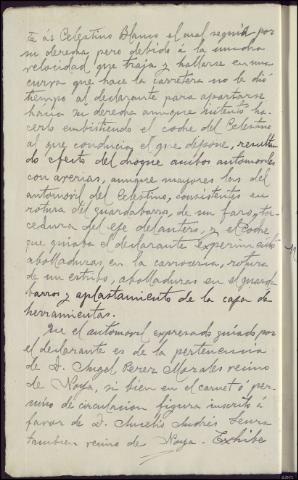 te a Celestino Blanco el cual seguia por
su derecha, pero debido á la mucha
velocidad que traja y hallarse en una
curva que hace la carretera no le dió
tiempo al declarante para apartarse
hacia su derecha aunque intentó ha-
cerlo embistiendo el coche del Celestino
al que conducia el que depone, resultan-
do efecto del choque ambos automoviles
con averias, aunque mayores las del
automovil del Celestino, consistentes en
rotura del guardabarra, de un faro, tor-
cedura del eje delantero, y el coche
que guiaba el declarante experimentó
abolladuras en la carroceria, rotura
de un estribo, abolladuras en el guarda-
barros y aplastamiento de la caja de
herramientas.
Que el automovil expresado guiado por
el declarante es de la pertenencia
de D. Angel Perez Morales vecino
de Noya, si bien en el carnet ó per-
miso de circulacion figura inscrito á
favor de D. Aurelio Andrés
tambien vecino de Noya. Exhibe